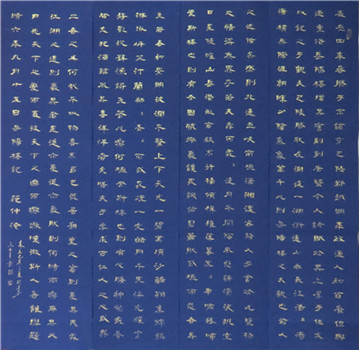 慶曆四年春滕子京謫守巴陵郡越明年政通人和百廢俱興
乃重修岳陽樓增其舊制刻唐賢今人詩賦於其上屬予作文
以記之予觀夫巴陵勝狀在洞庭一湖銜遠山吞長江浩浩湯
湯橫無際涯朝暉夕陰氣象萬千此則岳陽樓之大觀也前人
之述備矣然則北通巫峽南極瀟湘遷客騷人多會於此覽物
之情得無異乎若夫霪雨霏霏連月不開陰風怒號濁浪排空
日星隱曜山岳潛形商旅不行檣傾楫摧薄暮冥冥虎嘯猿啼
登斯樓也則有去國懷鄉憂讒畏譏滿目蕭然感極而悲者矣
至若春和景明波瀾不驚上下天光一碧萬頃沙鷗翔集錦鱗
游泳岸芷汀蘭郁郁青青而或長煙一空皓月千里浮光躍金
靜影沉璧漁歌互答此樂何極登斯樓也則有心曠神怡寵辱
偕忘把酒臨風其喜洋洋者矣嗟夫予嘗求古仁人之心或異
二者之為何哉不以物喜不以己悲居廟堂之高則憂其民處
江湖之遠則憂其君是進亦憂退亦憂然則何時而樂耶其必
曰先天下之憂而憂後天下之樂而樂乎噫微斯人吾誰與歸
時六年九月十五日岳陽樓記 范仲淹